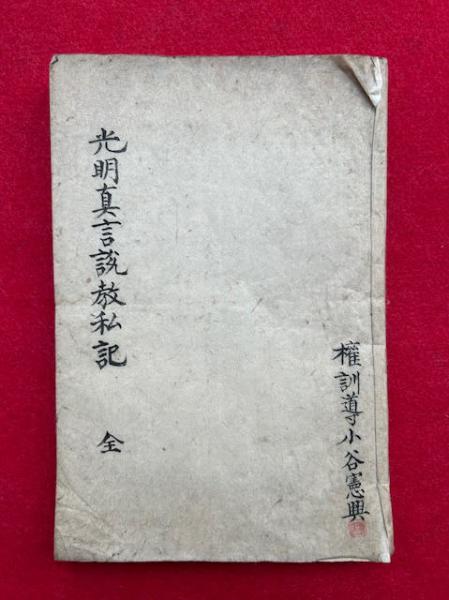 光明真言説教私記
全
權訓導小谷憲興